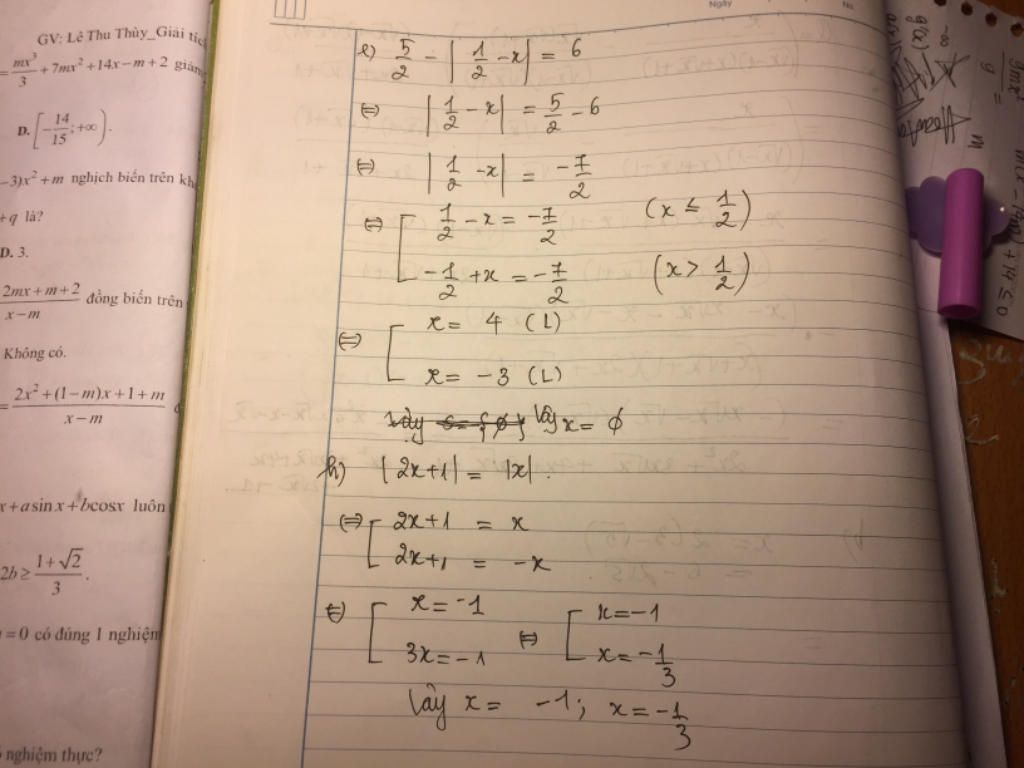 GV: Lê Thu Thùy_Giải tíc
= mx³/3 + 7mx² + 14x − m + 2 giảm
D. [−14/15; +∞).
−3)x² + m nghịch biến trên kh
+ q là?
D. 3.
2mx + m + 2 / x − m đồng biến trên
Không có.
= 2x² + (1 − m)x + 1 + m / x − m
x + a sin x + b cos x luôn
2b ≥ 1 + √2 / 3.
= 0 có đúng 1 nghiệm
nghiệm thực?
Ngày
No.
e) 5/2 − |1/2 − x| = 6
⇔ |1/2 − x| = 5/2 − 6
⇔ |1/2 − x| = −7/2
⇔ [ 1/2 − x = −7/2 (x ≤ 1/2)
−1/2 + x = −7/2 (x > 1/2)
⇔ [ x = 4 (L)
x = −3 (L)
Vậy x = ∅
h) |2x + 1| = |x|.
⇔ [ 2x + 1 = x
2x + 1 = −x
⇔ [ x = −1 ⇔ [ x = −1
3x = −1 x = −1/3
Vậy x = −1; x = −1/3